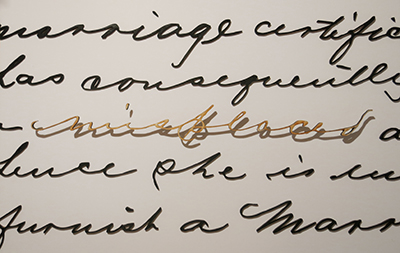 marriage certific
has consequently
misplaced a
she is un
furnish a Marr